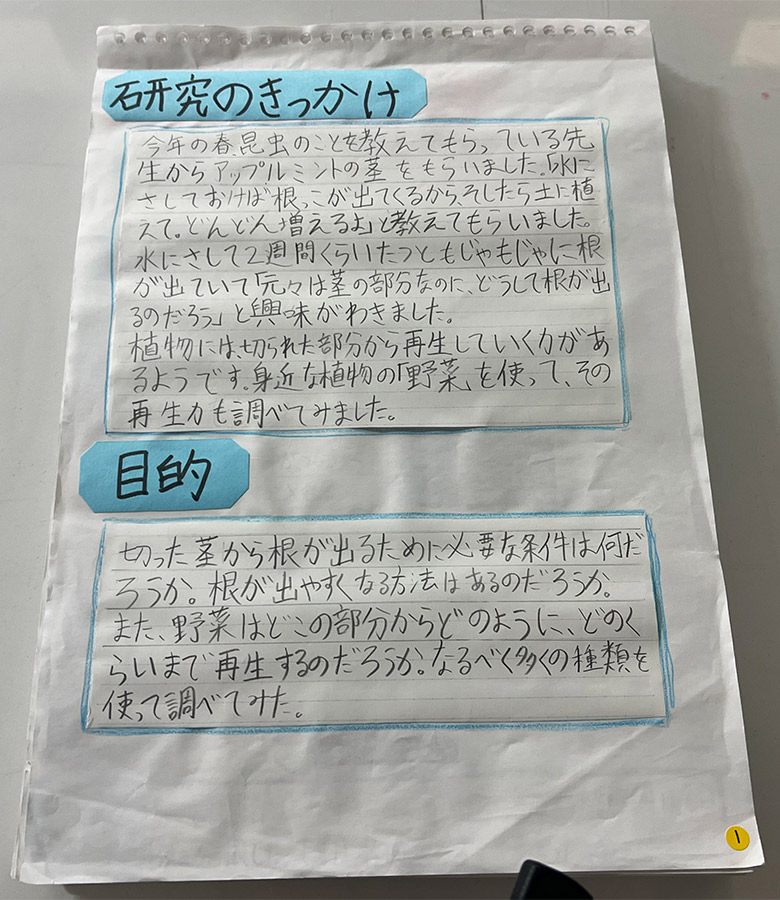 研究のきっかけ
今年の春昆虫のことを教えてもらっている先
生からアップルミントの茎をもらいました。「水に
さしておけば根っこが出てくるから、そしたら土に植
えて。どんどん増えるよ」と教えてもらいました。
水にさして2週間くらいたつともじゃもじゃに根
が出ていて「元々は茎の部分なのに、どうして根が出
るのだろう」と興味がわきました。
植物には、切られた部分から再生していく力があ
るようです。身近な植物の「野菜」を使って、その
再生力も調べてみました。
目的
切った茎から根が出るために必要な条件は何だ
ろうか。根が出やすくなる方法はあるのだろうか。
また、野菜はどこの部分からどのように、どのく
らいまで再生するのだろうか。なるべく多くの種類を
使って調べてみた。
1